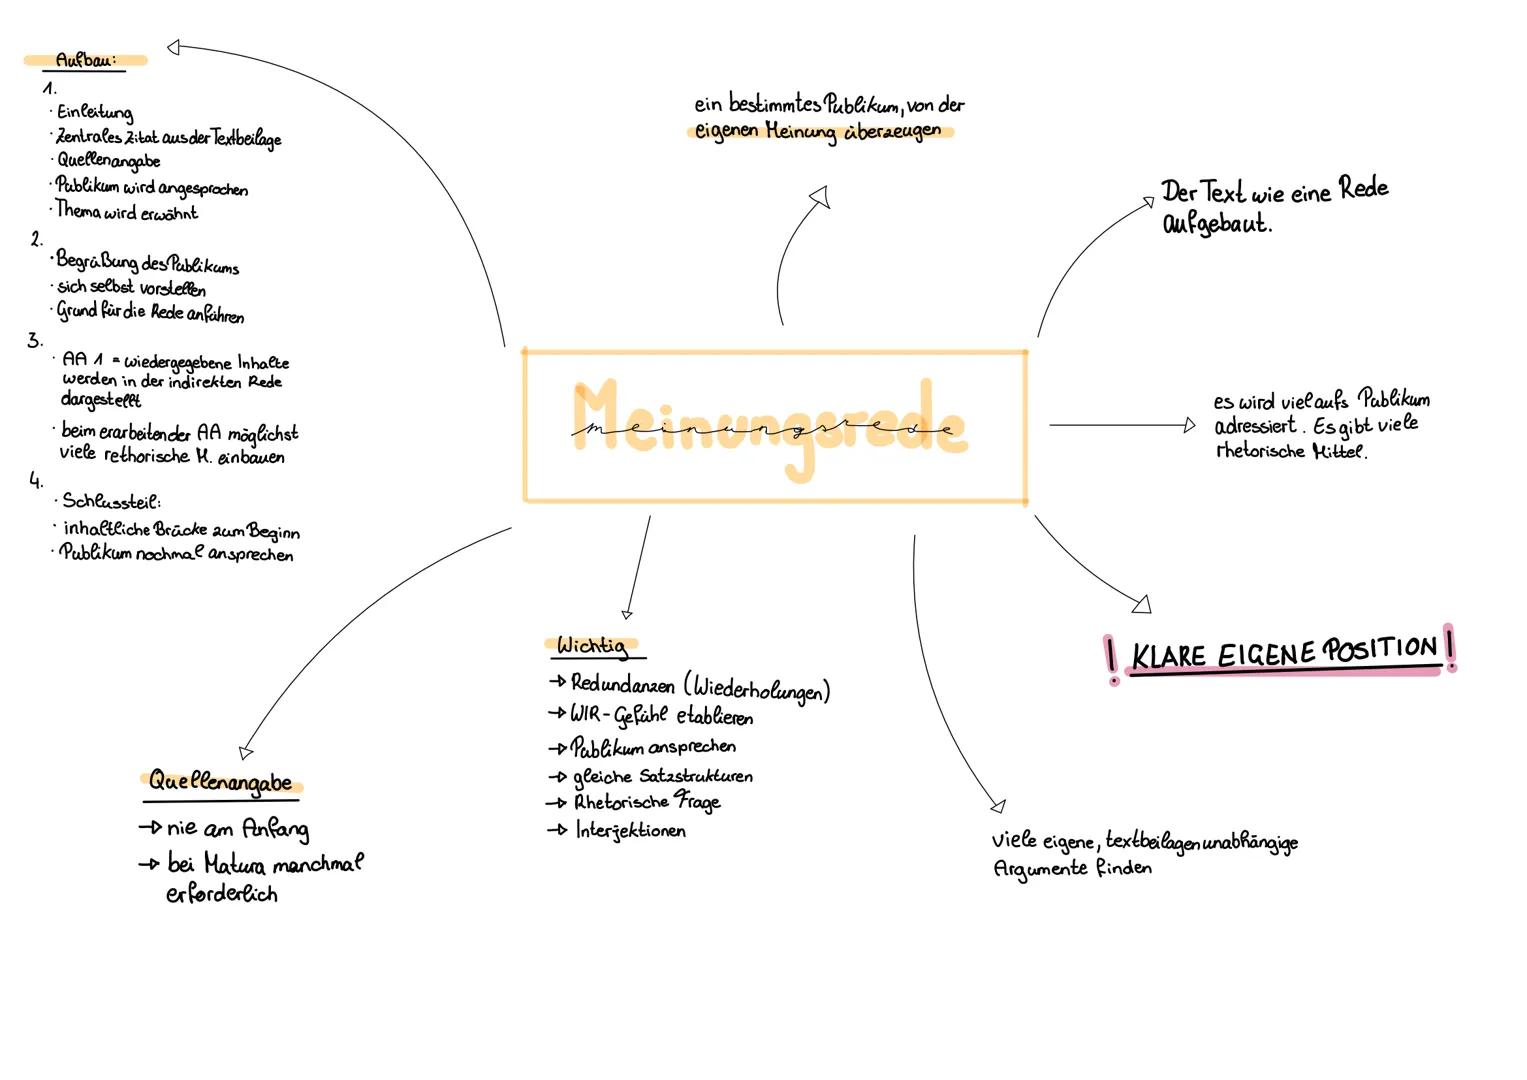 Aufbau:
1.
· Einleitung
· Zentrales Zitat aus der Textbeilage
· Quellenangabe
· Publikum wird angesprochen
· Thema wird erwähnt
2.
· Begrüßung des Publikums
· sich selbst vorstellen
· Grund für die Rede anführen
3.
· AA 1 = wiedergegebene Inhalte
werden in der indirekten Rede
dargestellt
· beim erarbeiten der AA möglichst
viele rethorische M. einbauen
4.
· Schlussteil:
· inhaltliche Brücke zum Beginn
· Publikum nochmal ansprechen
ein bestimmtes Publikum, von der
eigenen Meinung überzeugen
Der Text wie eine Rede
aufgebaut.
Meinungsrede
meinungsrede
es wird viel aufs Publikum
adressiert. Es gibt viele
rhetorische Mittel.
! KLARE EIGENE POSITION !
Wichtig
→ Redundanzen (Wiederholungen)
→ WIR-Gefühl etablieren
→ Publikum ansprechen
→ gleiche Satzstrukturen
→ Rhetorische Frage
→ Interjektionen
Quellenangabe
→ nie am Anfang
→ bei Matura manchmal
erforderlich
viele eigene, textbeilagenunabhängige
Argumente finden